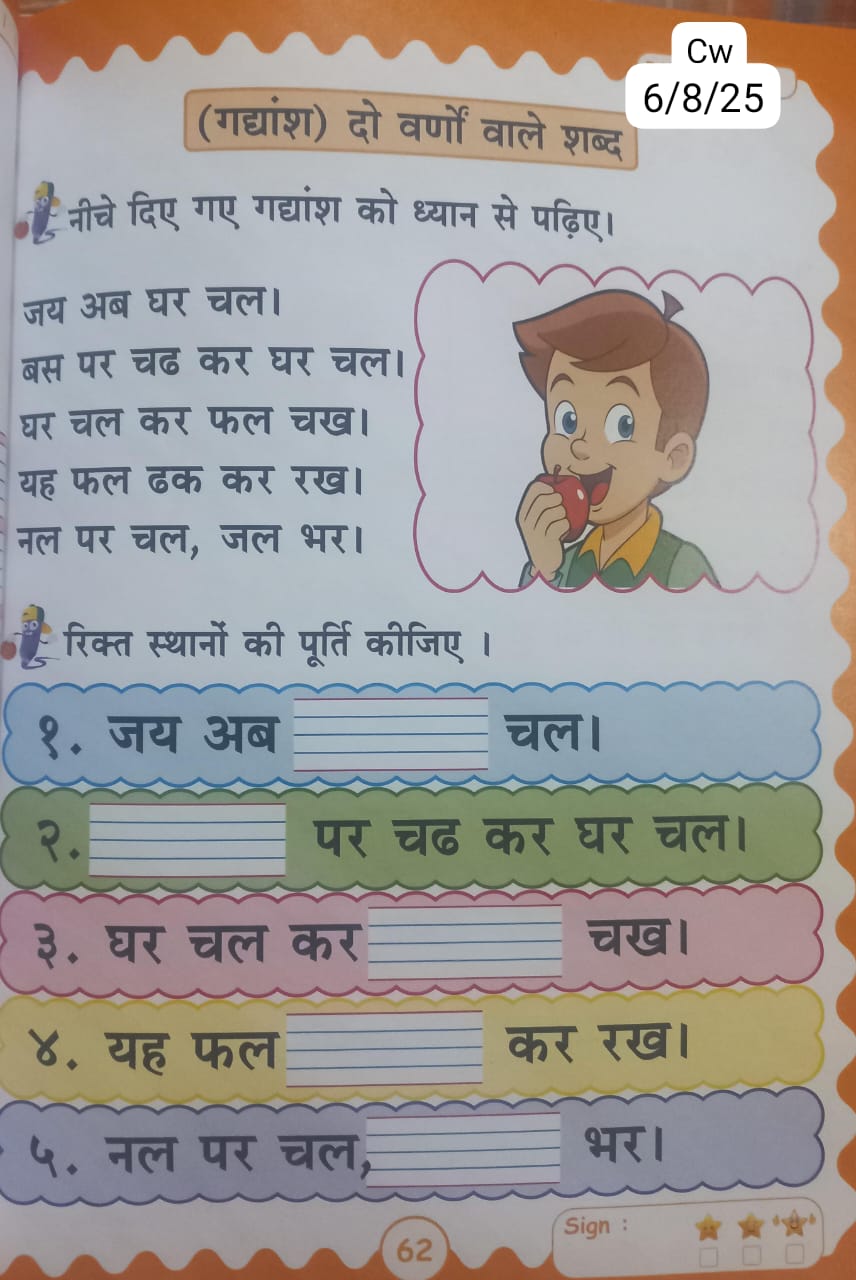 Cw
6/8/25
(गद्यांश) दो वर्णों वाले शब्द
नीचे दिए गए गद्यांश को ध्यान से पढ़िए।
जय अब घर चल।
बस पर चढ कर घर चल।
घर चल कर फल चख।
यह फल ढक कर रख।
नल पर चल, जल भर।
रिक्त स्थानों की पूर्ति कीजिए ।
१. जय अब चल।
२. पर चढ कर घर चल।
३. घर चल कर चख।
४. यह फल कर रख।
५. नल पर चल, भर।
Sign :
62